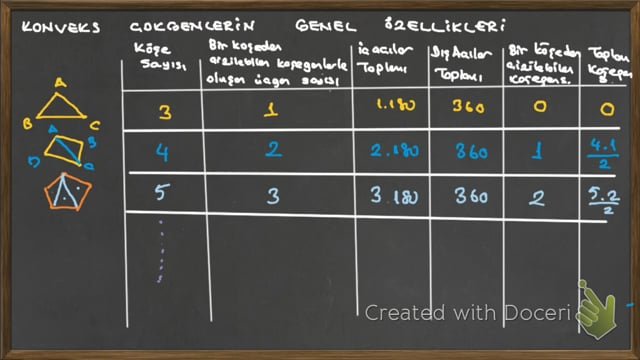 KONVEKS ÇOKGENLERİN GENEL ÖZELLİKLERİ
Köşe Sayısı
Bir köşeden çizilebilen köşegenlerle oluşan üçgen sayısı
İç açılar Toplamı
Dış Açılar Toplamı
Bir köşeden çizilebilen köşegens.
Toplam Köşegen
A
B C
3 1 1.180 360 0 0
A
B
D
C
4 2 2.180 360 1 4.1/2
5 3 3.180 360 2 5.2/2
Created with Doceri